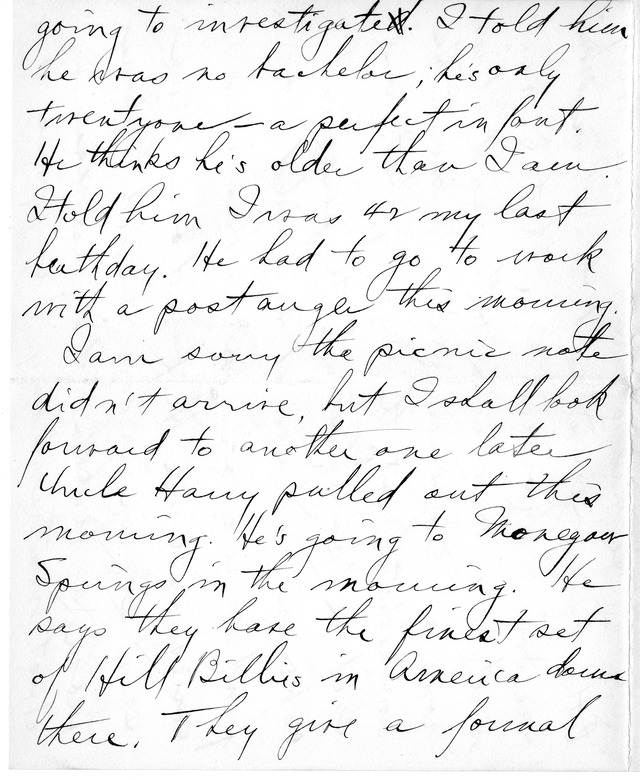 going to investigate. I told him
he was no bachelor; he's only
twentyone - a perfect infant.
He thinks he's older than I am.
I told him I was 42 my last
birthday. He had to go to work
with a post auger this morning.
I am sorry the picnic note
didn't arrive, but I shall look
forward to another one later
Uncle Harry pulled out this
morning. He's going to Monegaw
Springs in the morning. He
says they have the finest set
of Hill Billies in America down
there. They give a formal